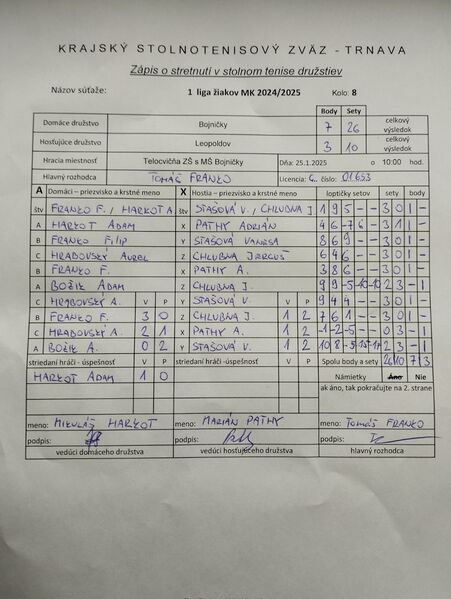 KRAJSKÝ STOLNOTENISOVÝ ZVÄZ - TRNAVA
Zápis o stretnutí v stolnom tenise družstiev
Názov súťaže: 1 liga žiakov MK 2024/2025 Kolo: 8
Body Sety
Domáce družstvo Bojničky 7 26 celkový výsledok
Hosťujúce družstvo Leopoldov 3 10 celkový výsledok
Hracia miestnosť Telocvičňa ZŠ s MŠ Bojničky Dňa: 25.1.2025 o 10:00 hod.
Hlavný rozhodca TOMÁŠ FRANKO Licencia: C. číslo: 01653
A Domáci – priezvisko a krstné meno X Hostia – priezvisko a krstné meno loptičky setov sety body
štv FRANKO F. / HARKOT A štv STAŠOVÁ V. / CHLUBNA J 1 9 5 - - 3 0 1 -
A HARKOT ADAM X PATHY ADRIÁN 4 6 -7 6 - 3 1 1 -
B FRANKO FILIP Y STAŠOVÁ VANESA 8 6 9 - - 3 0 1 -
C HRADOVSKÝ AUREL Z CHLUBNA JERGUŠ 6 4 6 - - 3 0 1 -
B FRANKO F. X PATHY A. 3 8 6 - - 3 0 1 -
A BOŽIK ADAM Z CHLUBNA J. 9 9 -5 -10 -10 2 3 - 1
C HRADOVSKÝ A. V P Y STAŠOVÁ V. V P 9 4 4 - - 3 0 1 -
B FRANKO F. 3 0 Z CHLUBNA J. 1 2 7 6 1 - - 3 0 1 -
C HRADOVSKÝ A. 2 1 X PATHY A. 1 2 -1 -2 -5 - - 0 3 - 1
A BOŽIK A. 0 2 Y STAŠOVÁ V. 1 2 10 8 2 3 - 1
striedaní hráči - úspešnosť V P striedaní hráči - úspešnosť V P Spolu body a sety 26/10 7/3
HARKOT ADAM 1 0 Námietky Áno Nie
ak áno, tak pokračujte na 2. strane
meno: MIKULÁŠ HARKOT meno: MARIÁN PATHY meno: TOMÁŠ FRANKO
podpis: podpis: podpis:
vedúci domáceho družstva vedúci hosťujúceho družstva hlavný rozhodca